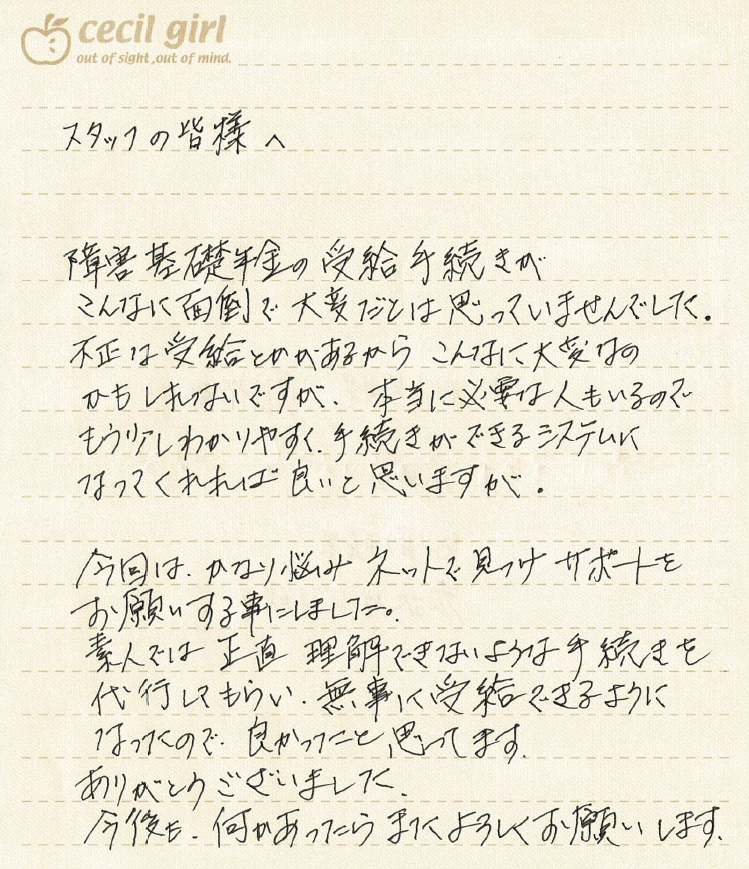 cecil girl
out of sight ,out of mind.
スタッフの皆様へ
障害基礎年金の受給手続きが
こんなに面倒で大変だとは思っていませんでした。
不正な受給とかがあるからこんなに大変なの
かもしれないですが、本当に必要な人もいるので
もう少しわかりやすく、手続きができるシステムに
なってくれれば良いと思いますが。
今回は、かなり悩みネットで見つけサポートを
お願いする事にしました。
素人では正直理解できないような手続きを
代行してもらい、無事に受給できるように
なったので、良かったこと思ってます。
ありがとうございました。
今後も、何かあったらまたよろしくお願いします。